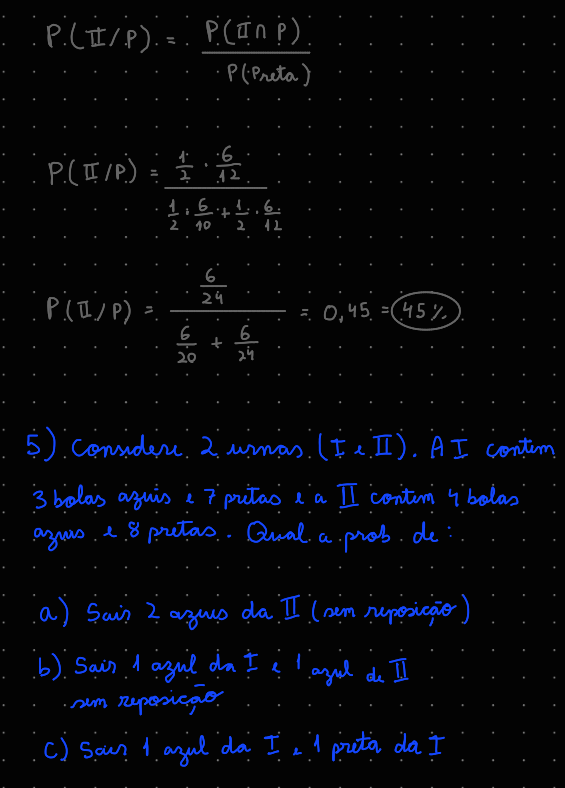 P(II/P) = P(II∩P) / P(Preta)
P(II/P) = 1/2 · 6/12 / 1/2 · 6/10 + 1/2 · 6/12
P(II/P) = 6/24 / 6/20 + 6/24 = 0,45 = 45%
5) Considere 2 urnas (I e II). A I contem
3 bolas azuis e 7 pretas e a II contem 4 bolas
azuis e 8 pretas. Qual a prob de:
a) Sair 2 azuis da II (sem reposição)
b) Sair 1 azul da I e 1 azul de II
sem reposição
c) Sair 1 azul da I e 1 preta da I